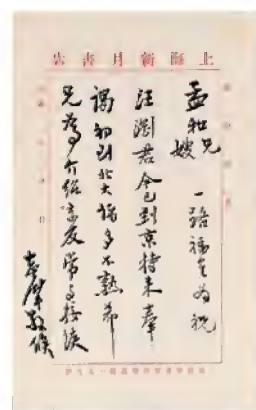 上海新月書店
孟和兄嫂 一路福星为祝
汪瀏君今已到京特来奉
謁初到北大諸多不熟希
兄为介绍友常与接谈
志摩敬候